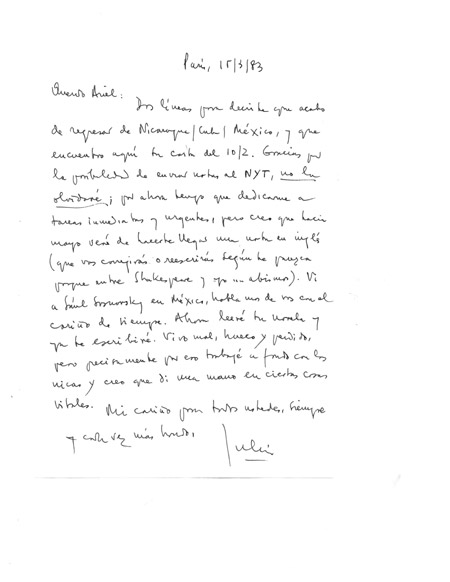 París, 15/3/83
Querido Ariel:
Dos líneas para decirte que acabo
de regresar de Nicaragua/Cuba/México, y que
encuentro aquí tu carta del 10/2. Gracias por
la posibilidad de enviar notas al NYT, no la
olvidaré; por ahora tengo que dedicarme a
tareas inmediatas y urgentes, pero creo que hacia
mayo veré de hacerte llegar una nota en inglés
(que vos corregirás o reescribirás según te parezca
porque entre Shakespeare y yo... abismos). Vi
a Saúl Sosnowsky en México, hablamos de vos con el
cariño de siempre. Ahora leeré tu novela y
ya te escribiré. Vivo mal, hueco y perdido,
pero precisamente por eso trabajé a fondo con los
nicas y creo que di una mano en ciertas cosas
vitales. Mi cariño para todos ustedes, siempre
y cada vez más hondo,
Julio